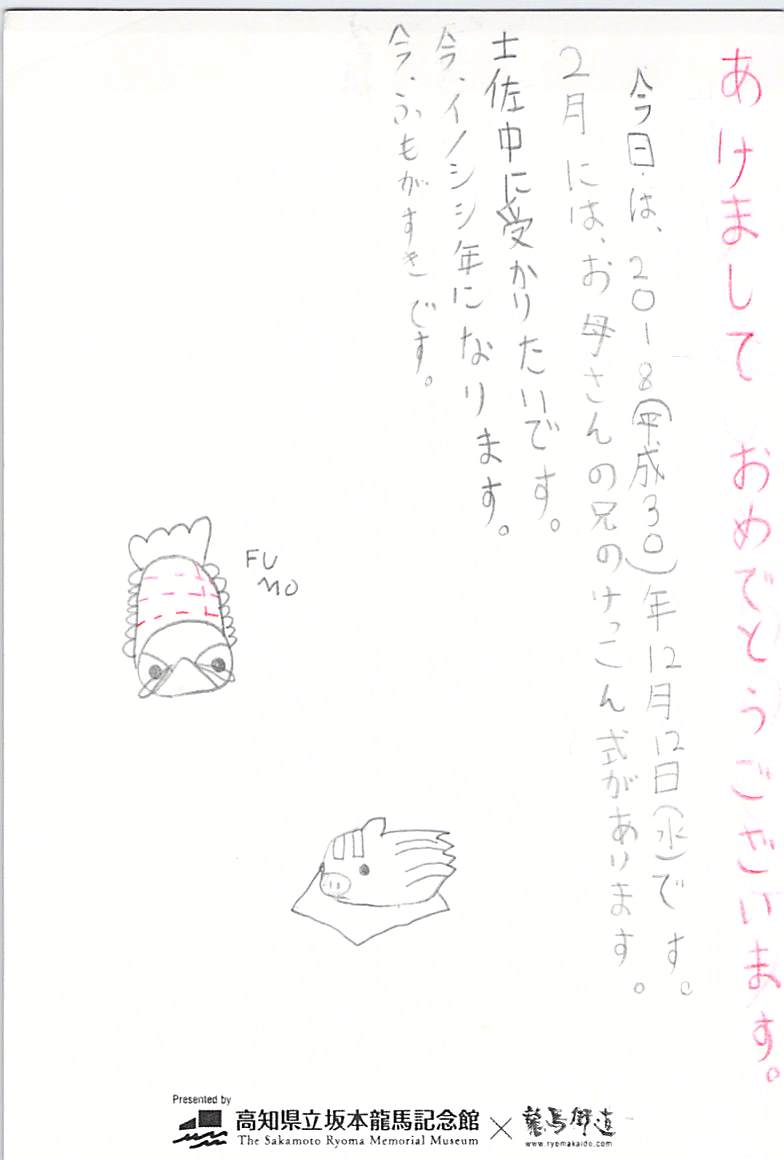 あけまして おめでとうございます。
今日は、2018(平成30)年12月12日(水)です。
2月には、お母さんの兄のけっこん式があります。
土佐中に受かりたいです。
今、イノシシ年になります。
今、ふもがすきです。
FU
MO
Presented by
高知県立坂本龍馬記念館
The Sakamoto Ryoma Memorial Museum
×
龍馬街道
www.ryomakaido.com